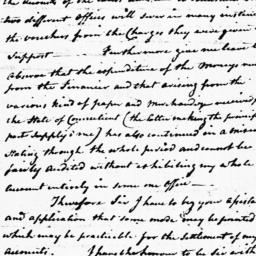 the Accounts of the
two different Offices will sever in many instances
the vouchers from the Charges they were given
Support. Furthermore give me leave to
observe that the expenditure of the Moneys rec
from the Financier and that arising from the
various kind of paper and Merchandize received
the State of Connecticut (the latter making the princip
part supply'd me) has also continued in a mixed
State, though the whole period and cannot be
fairly Audited without exhibiting my whole
Account entirely in some one Office —
Therefore Sir I have to beg your
and application that some mode may be pointed
which may be practicable for the settlement of my
Accounts. I have the honour to be Sir with